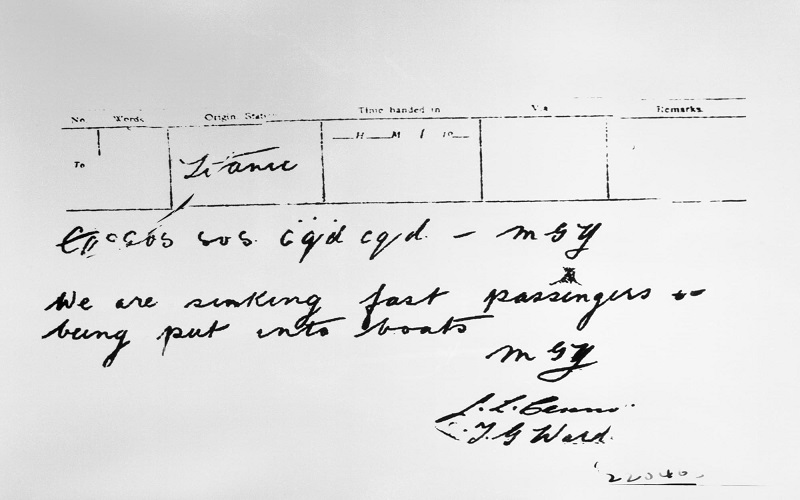 No. Words. Origin Station. Time handed in. Via. Remarks.
To Titanic H M 19
sos sos cqd cqd - MGY
We are sinking fast passengers
being put into boats
MGY
T G Ward